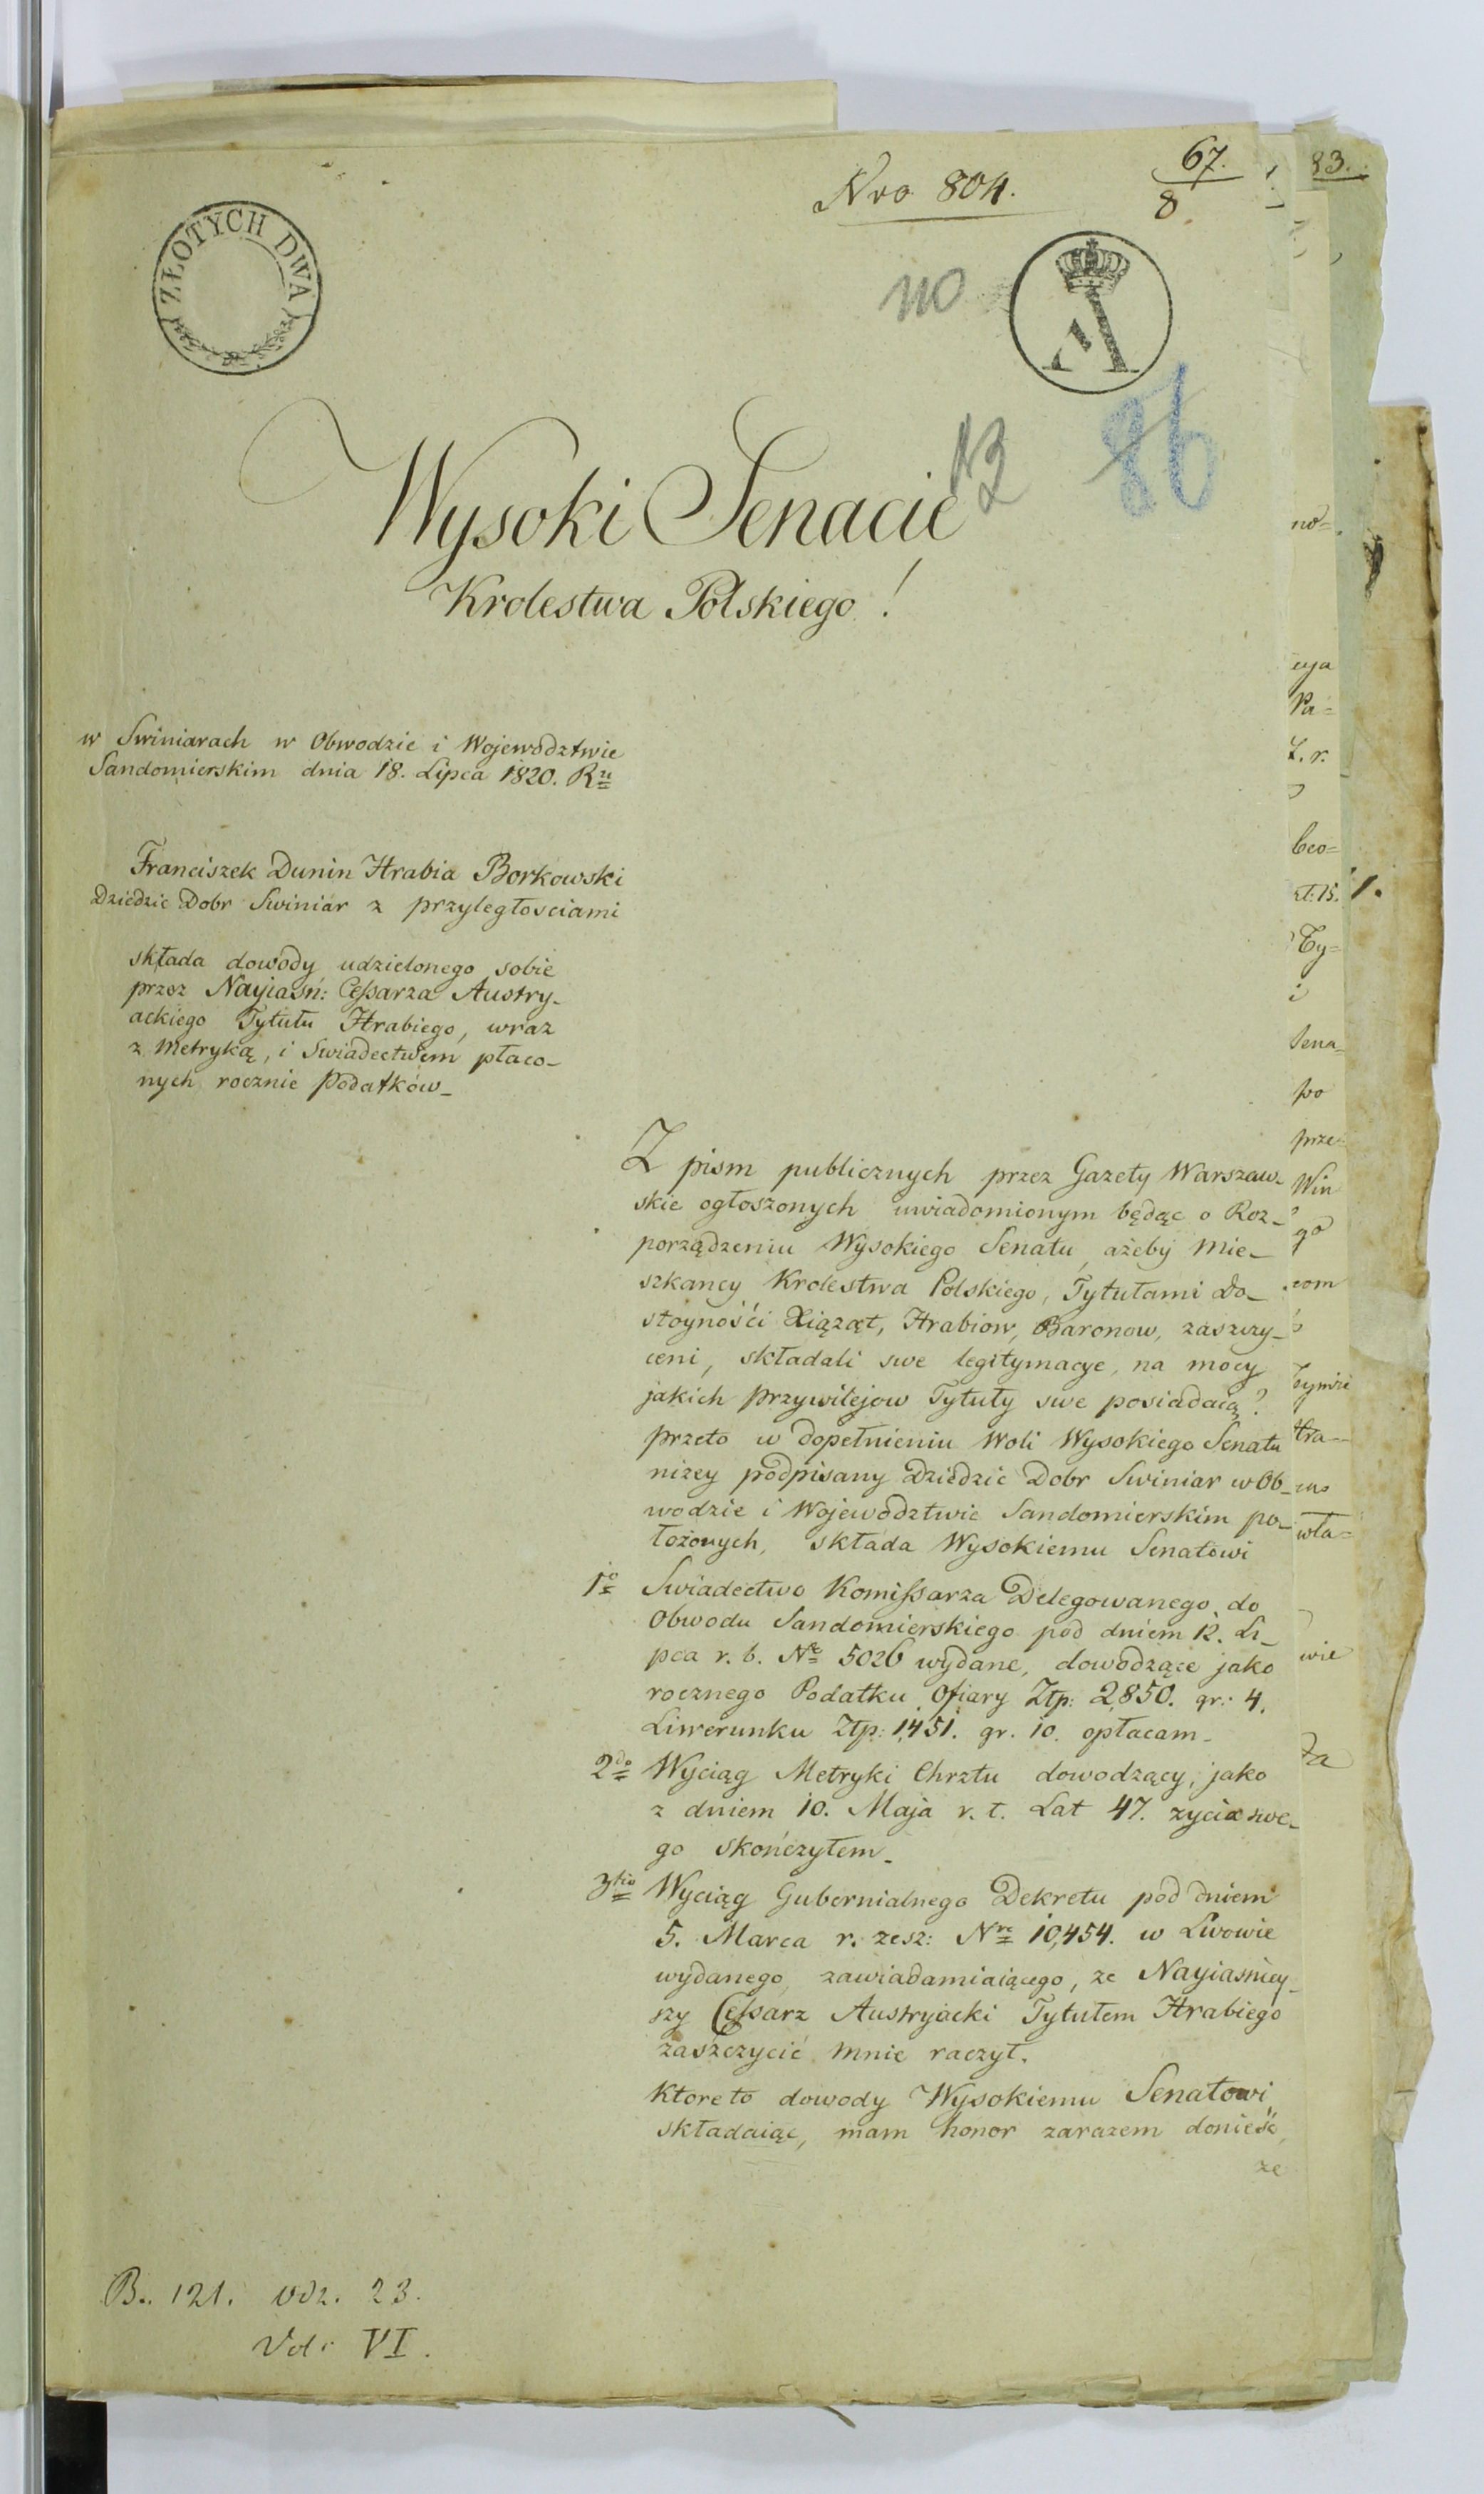 Nro 804.
67.
8
83.
ZŁOTYCH DWA
no
A
N3
86
Wysoki Senacie
Krolestwa Polskiego!
w Swiniarach w Obwodzie i Wojewodztwie
Sandomierskim dnia 18. Lipca 1820. Ru
Franciszek Dunin Hrabia Borkowski
Dziedzic Dobr Swiniar z przyległosciami
składa dowody udzielonego sobie
przez Nayiaśń: Cessarza Austry-
ackiego Tytułu Hrabiego, wraz
z Metryką, i Swiadectwem płaco-
nych rocznie Podatków_
Z pism publicznych przez Gazety Warszaw-
skie ogłoszonych uwiadomionym będąc o Roz-
porządzeniu Wysokiego Senatu, ażeby Mie-
szkancy Krolestwa Polskiego, Tytułami Do-
stoyności Xiążąt, Hrabiow, Baronow, zaszczy-
ceni, składali swe legitymacye, na mocy
jakich Przywilejow Tytuły swe posiadaią?
przeto w dopełnieniu Woli Wysokiego Senatu
niżey podpisany Dziedzic Dobr Swiniar w Ob-
wodzie i Wojewodztwie Sandomierskim po-
łożonych, składa Wysokiemu Senatowi
1o Swiadectwo Komissarza Delegowanego do
Obwodu Sandomierskiego pod dniem 12. Li-
pca r. b. No 5026 wydane, dowodzące jako
rocznego Podatku Ofiary Ztp: 2,850. gr: 4.
Liwerunku Ztp: 1,451. gr. 10. opłacam_
2do Wyciąg Metryki Chrztu dowodzący, jako
z dniem 10. Maja r. t. Lat 47. zycia swe-
go skończyłem_
3tio Wyciąg Gubernialnego Dekretu pod dniem
5. Marca r. zesz: Nro 10,454. w Lwowie
wydanego, zawiadamiaiącego, ze Nayiasniey-
szy Cessarz Austryacki Tytułem Hrabiego
zaszczycić mnie raczył.
Ktore to dowody Wysokiemu Senatowi
składaiąc, mam honor zarazem donieść,
ze
B.. 121. vdz. 23.
Vol: VI.
no=
cya
Pa=
Z. r.
Ty=
i
Sena=
po
prze=
Win
go
com
Hra=
wła=
wie
1.